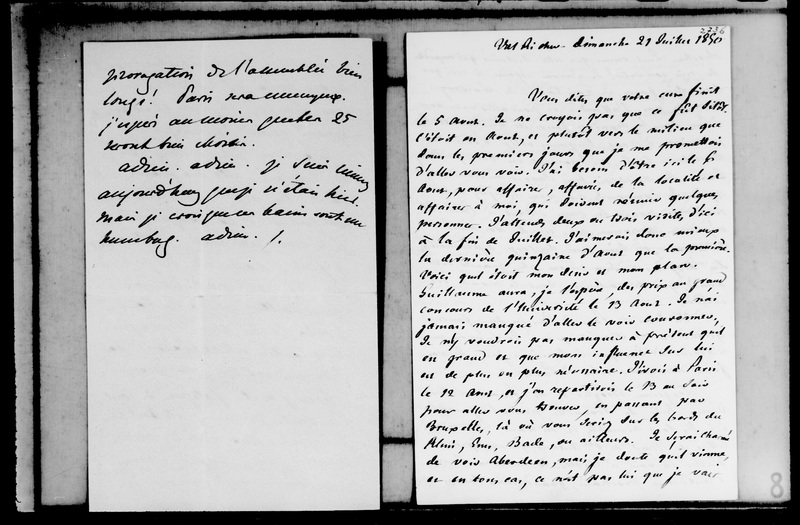 prorogation de l'assemblée bien
longue! Paris sera ennuyeux.
j'espère au moins que les 25
seront bien choisis.
adieu. adieu. je suis mieux
aujourd'hui que je n'étais hier.
mais je crois que ces bains sont un
humbug. adieu.
3236
Val Richer - Dimanche 21 Juillet 1850
Vous dites que votre cure finit
le 5 Août. Je ne croyois pas que ce fût sitôt.
C'étoit en Août, et plutôt vers le milieu que
dans les premiers jours que je me promettois
d'aller vous voir. J'ai besoin d'être ici le 6
Août, pour affaire, affaire de la localité et
affaire à moi, qui doivent réunir quelques
personnes. J'attends deux ou trois visites, d'ici
à la fin de Juillet. J'aimerois donc mieux
la dernière quinzaine d'Août que la première.
Voici quel étoit mon desir et mon plan.
Guillaume aura, je l'espère, des prix au grand
concours de l'Université le 13 Août. Je n'ai
jamais manqué d'aller le voir couronner,
Je n'y voudrois pas manquer à présent qu'il
est grand et que mon influence sur lui
est de plus en plus nécessaire. J'irois à Paris
le 12 Août, et j'en repartirois le 13 au soir
pour aller vous trouver, en passant par
Bruxelles, là où vous seriez sur les bords du
Rhin, Ems, Bade, ou ailleurs. Je serai charmé
de voir Aberdeen, mais je doute qu'il vienne,
et en tous cas, ce n'est pas lui que je vais
8